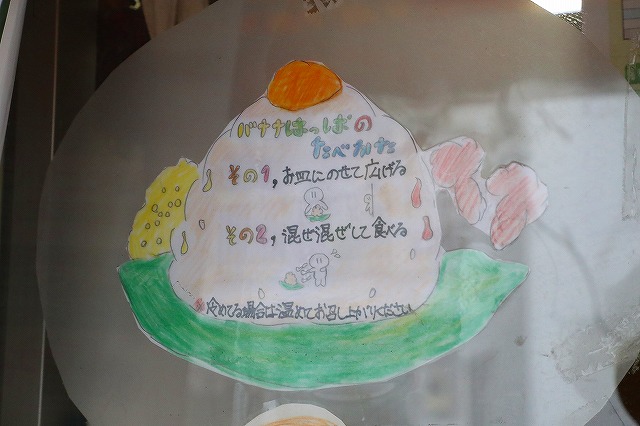 バナナはっぱの
たべかた
その1, お皿にのせて広げる
その2, 混ぜ混ぜして食べる
※冷めてる場合は温めてお召し上がりください